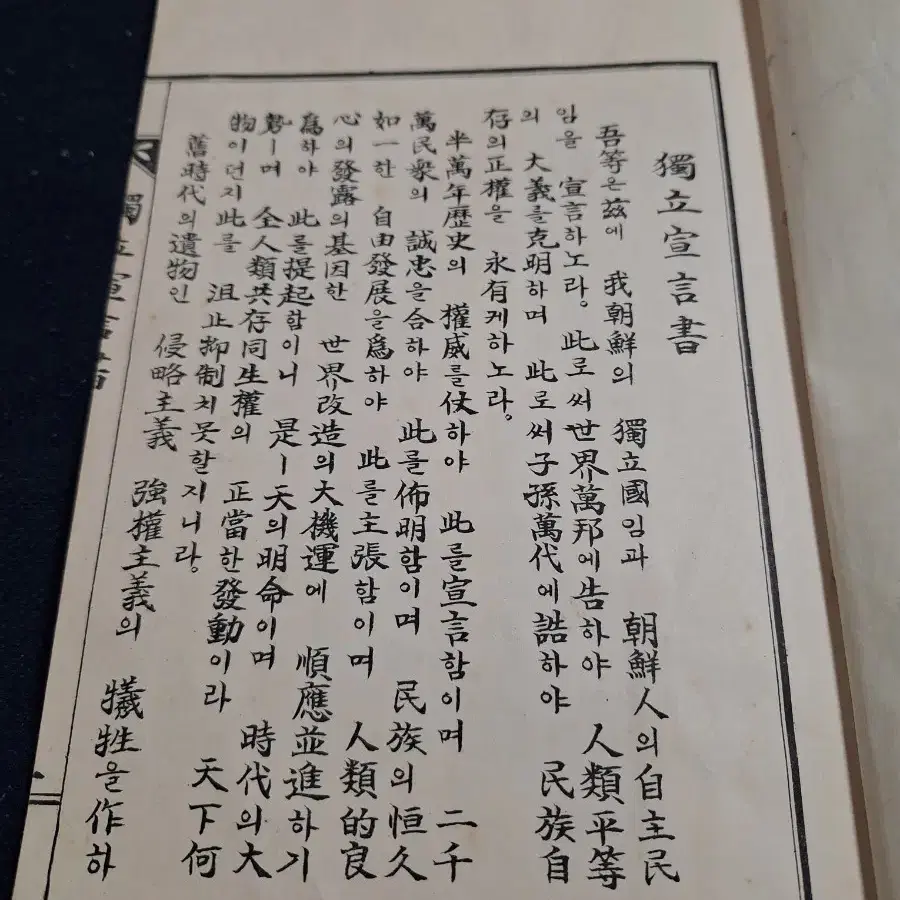 獨立宣言書
吾等은玆에 我朝鮮의 獨立國임과 朝鮮人의自主民
임을 宣言하노라。此로써世界萬邦에告하야 人類平等
의 大義를克明하며 此로써子孫萬代에誥하야 民族自
存의正權을 永有케하노라。
半萬年歷史의 權威를仗하야 此를宣言함이며 二千
萬民衆의 誠忠을合하야 此를佈明함이며 民族의恒久
如一한 自由發展을爲하야 此를主張함이며 人類的良
心의發露의基因한 世界改造의大機運에 順應並進하기
爲하야 此를提起함이니 是ㅣ天의明命이며 時代의大
勢ㅣ며 全人類共存同生權의 正當한發動이라 天下何
物이던지此를 沮止抑制치못할지니라。
舊時代의遺物인 侵略主義 強權主義의 犧牲을作하
獨立宣言書
一